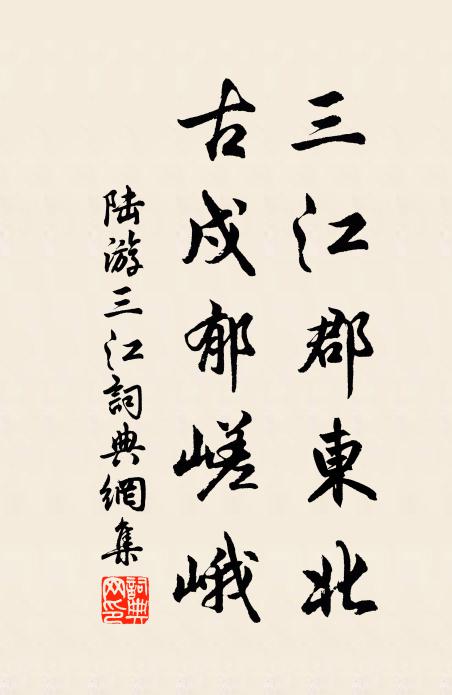 三江郡東北
古戍郁嵯峨
陆游三江詞典網集
詞典網印